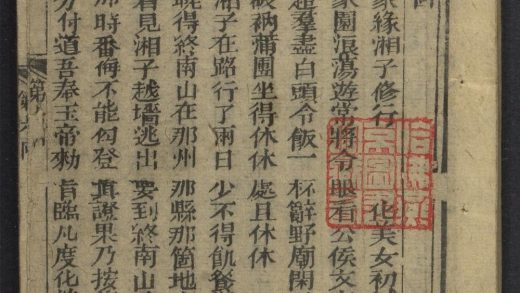 家緣湘子修行 化美女初
家園浪蕩遊常將令眼看公侯文
超羣盡白頭令飯一杯辭野廟閑
破衲蒲團坐得休休處且休休
湘子在路行了兩日少不得飢餐
曉得終南山在那州那縣那箇地
看見湘子越墻逃出要到終南山
那時番悔不能勾登真證果乃按
分付道吾奉玉帝勅旨臨凡度化
第